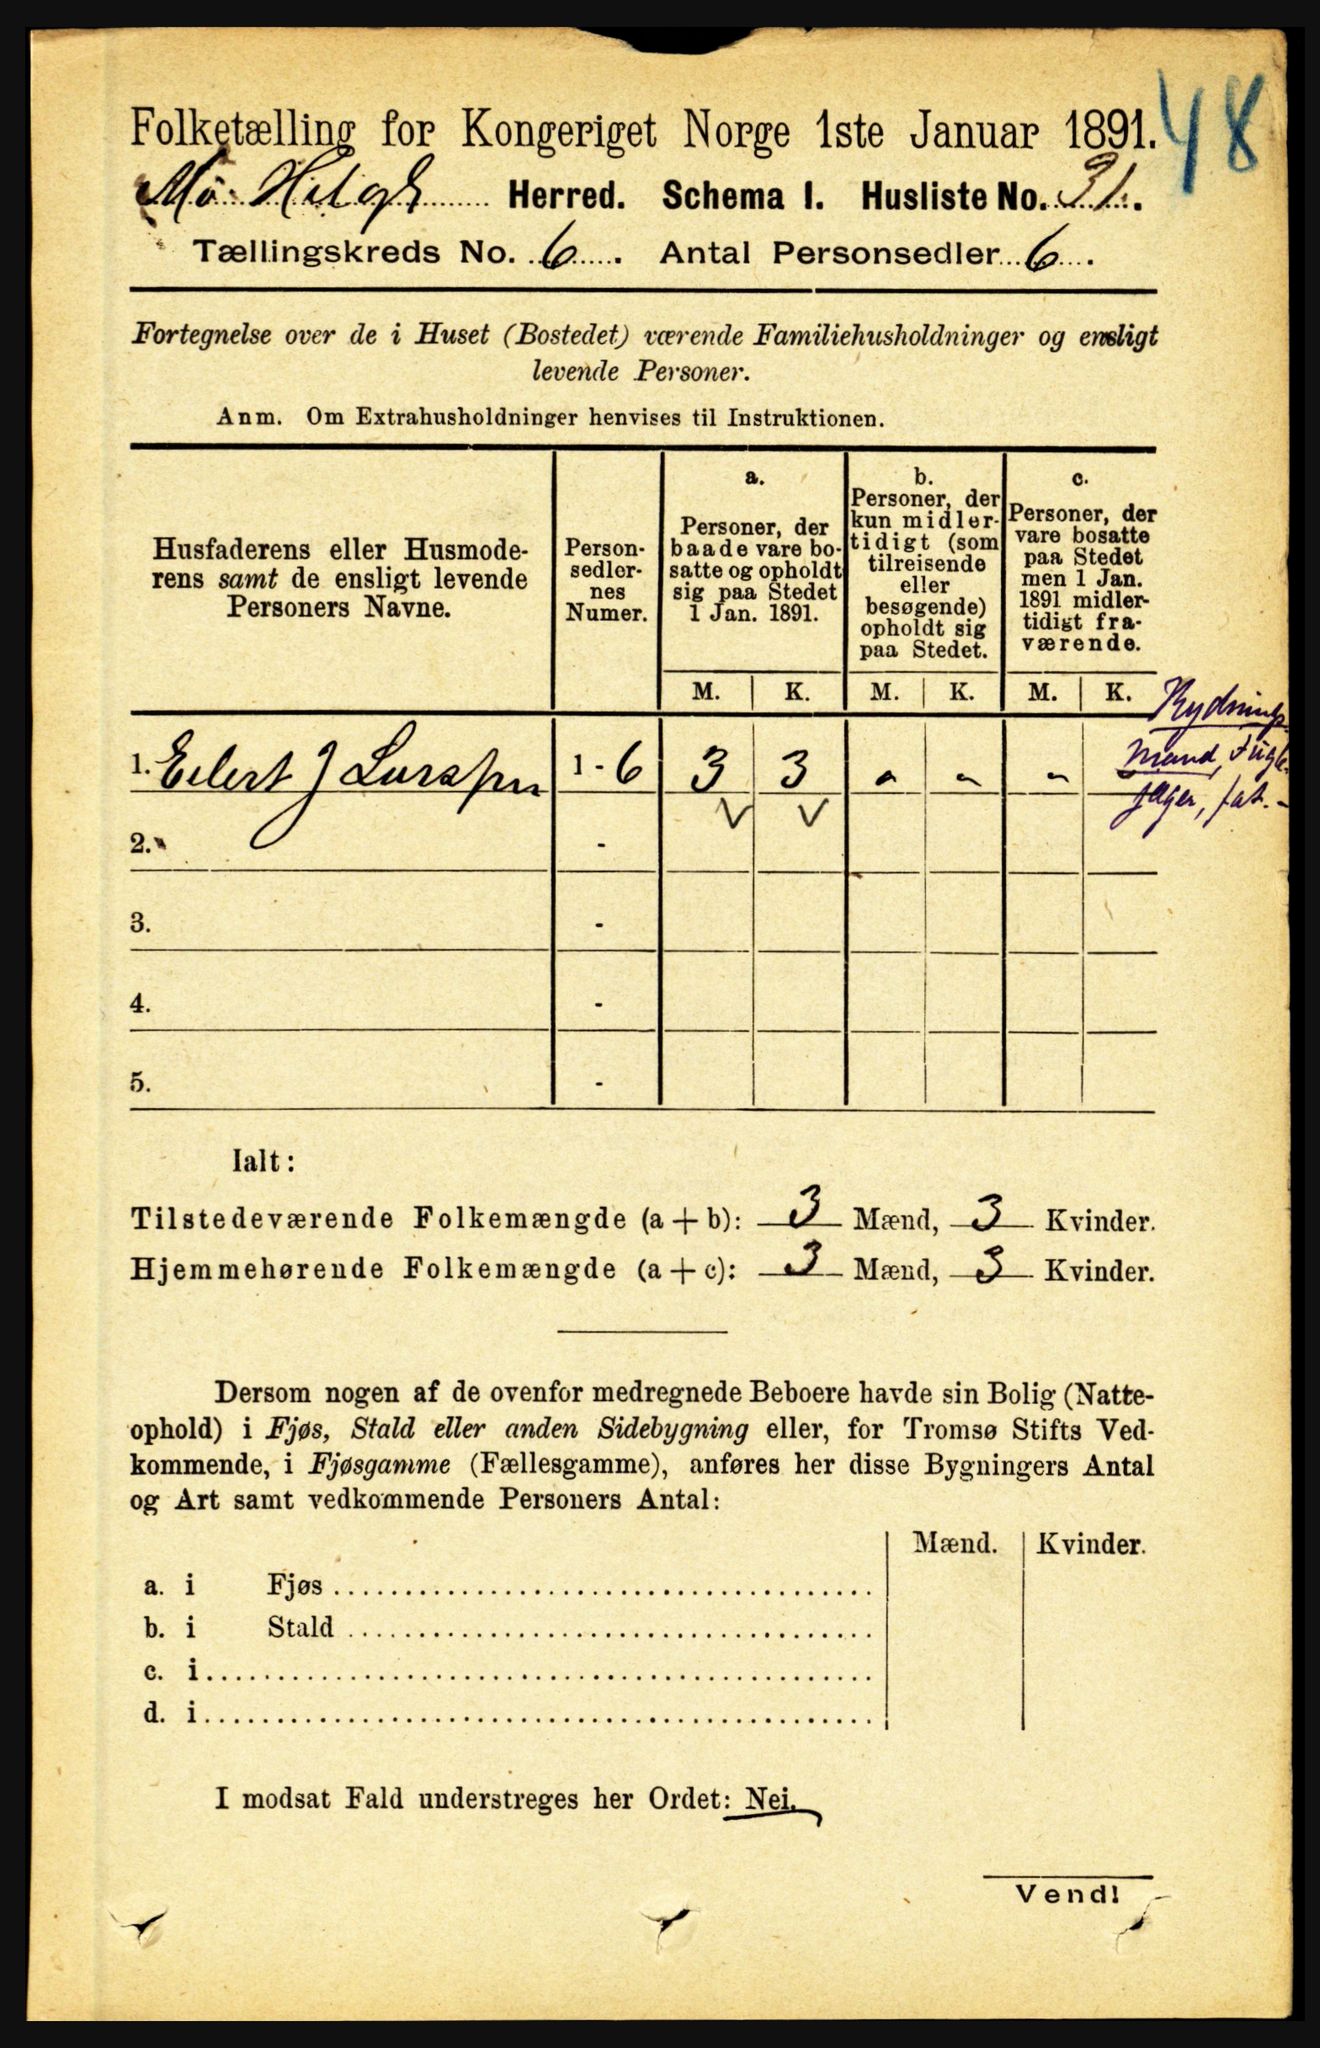 48
Folketælling for Kongeriget Norge 1ste Januar 1891.
Herred. Schema I. Husliste No. 31.
Tællingskreds No. 6. Antal Personsedler 6.
Fortegnelse over de i Huset (Bostedet) værende Familiehusholdninger og ensligt
levende Personer.
Anm. Om Extrahusholdninger henvises til Instruktionen.
Husfaderens eller Husmode-
rens samt de ensligt levende
Personers Navne.
Person-
sedler-
nes
Numer.
a.
Personer, der
baade vare bo-
satte og opholdt
sig paa Stedet
1 Jan. 1891.
b.
Personer, der
kun midler-
tidigt (som
tilreisende
eller
besøgende)
opholdt sig
paa Stedet.
c.
Personer, der
vare bosatte
paa Stedet
men 1 Jan.
1891 midler-
tidigt fra-
værende.
M. K. M. K. M. K.
Rydnings-
mand, Fugle-
jæger, fat.-
1. Eilert J Larssen 1 - 6 3 3 „ „ „
2. -
3. -
4. -
5. -
Ialt:
Tilstedeværende Folkemængde (a + b): 3 Mænd, 3 Kvinder.
Hjemmehørende Folkemængde (a + c): 3 Mænd, 3 Kvinder.
Dersom nogen af de ovenfor medregnede Beboere havde sin Bolig (Natte-
ophold) i Fjøs, Stald eller anden Sidebygning eller, for Tromsø Stifts Ved-
kommende, i Fjøsgamme (Fællesgamme), anføres her disse Bygningers Antal
og Art samt vedkommende Personers Antal:
Mænd. Kvinder.
a. i Fjøs
b. i Stald
c. i
d. i
I modsat Fald understreges her Ordet: Nei.
Vend!